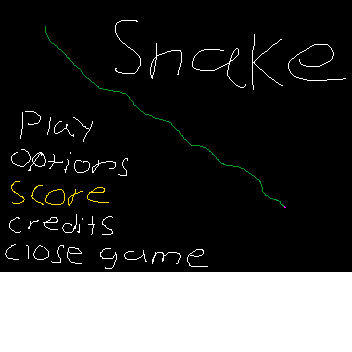 Snake
Play
options
score
credits
close game